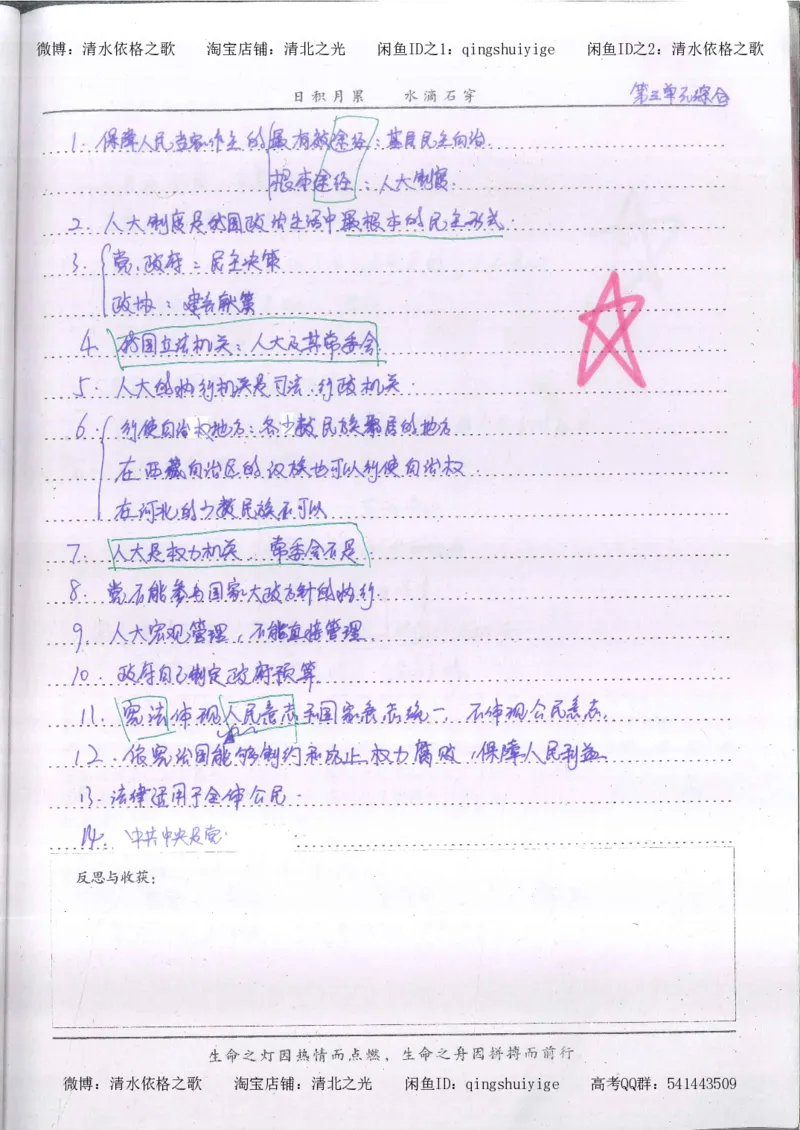 微博：清水依格之歌 淘宝店铺：清北之光 闲鱼ID之1：qingshuiyige 闲鱼ID之2：清水依格之歌
日积月累 水滴石穿
第三单元综合
1. 保障人民当家作主的 最有效途径：基层民主自治.
根本途径：人大制度.
2. 人大制度是我国政治生活中最根本的民主形式.
3. 党、政府：民主决策
政协：建言献策
4. 我国立法机关：人大及其常委会
5. 人大的执行机关是司法、行政机关.
6. 行使自治权地方：各少数民族聚居的地方
在西藏自治区的汉族也可以行使自治权.
在河北的少数民族不可以
7. 人大是权力机关 常委会不是.
8. 党不能参与国家大政方针的执行.
9. 人大宏观管理，不能直接管理
10. 政府自己制定政府预算
11. 宪法体现人民意志和国家意志统一，不体现公民意志.
12. 依宪治国能够制约和防止权力腐败，保障人民利益.
13. 法律适用于全体公民.
14. 中共中央是党.
反思与收获：
生命之灯因热情而点燃，生命之舟因拼搏而前行
微博：清水依格之歌 淘宝店铺：清北之光 闲鱼ID：qingshuiyige 高考QQ群：541443509